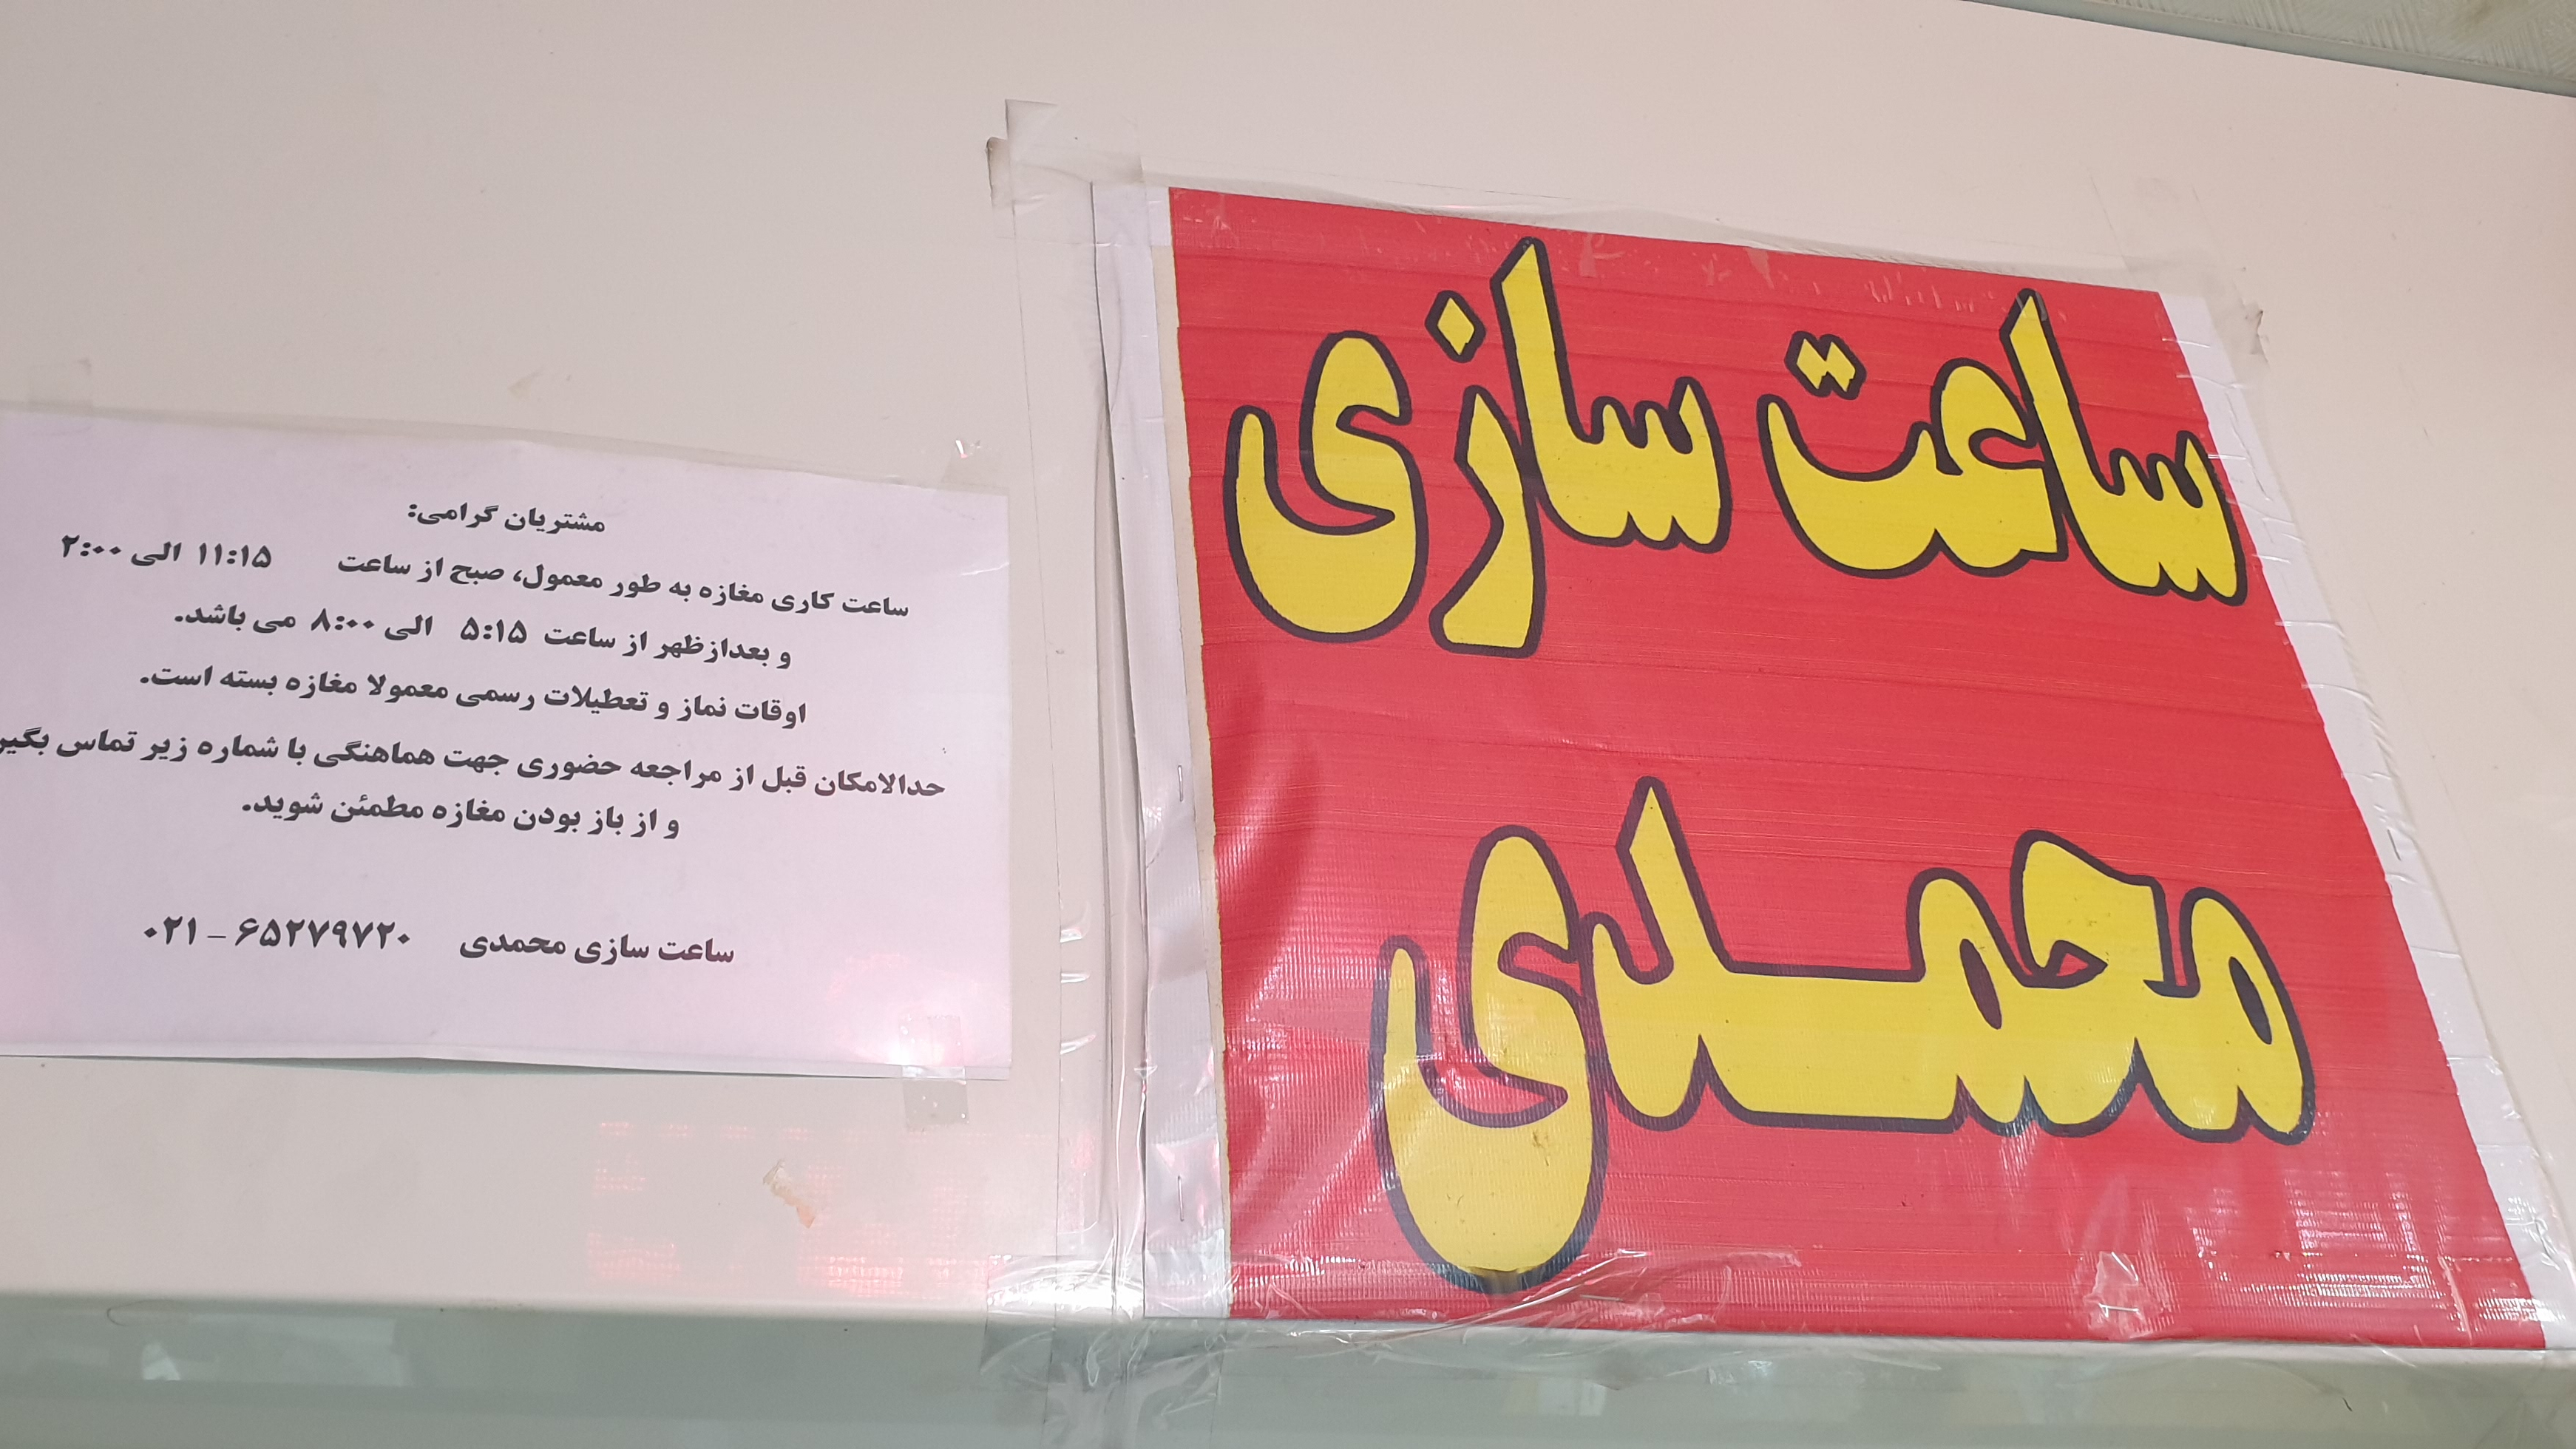 ساعت سازی
محمدی
مشتریان گرامی:
ساعت کاری مغازه به طور معمول، صبح از ساعت ۱۱:۱۵ الی ۲:۰۰
و بعدازظهر از ساعت ۵:۱۵ الی ۸:۰۰ می باشد.
اوقات نماز و تعطیلات رسمی معمولا مغازه بسته است.
حدالامکان قبل از مراجعه حضوری جهت هماهنگی با شماره زیر تماس بگیر
و از باز بودن مغازه مطمئن شوید.
ساعت سازی محمدی ۶۵۲۷۹۷۲۰ - ۰۲۱